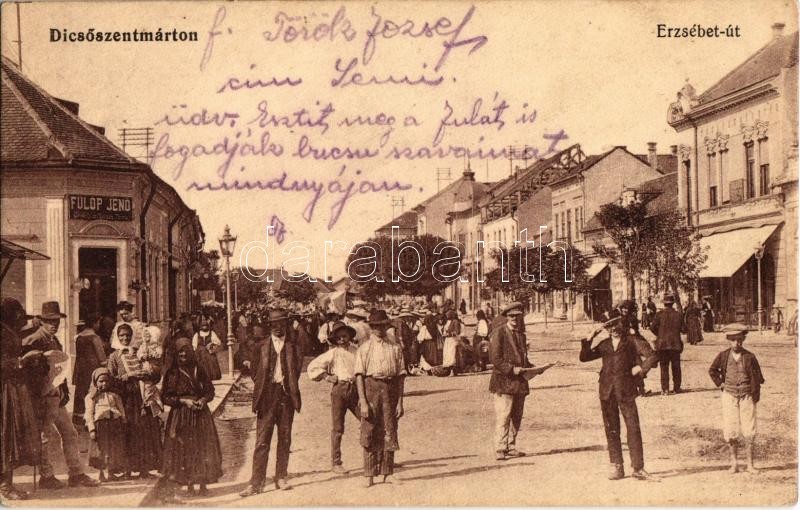 Dicsőszentmárton
Erzsébet-út
f. Török József
cím Semi.
üdv. Esztit, meg a Julát, is
fogadják bucsu szavaimat
mindnyáján.
FÜLÖP JENŐ
darabanth